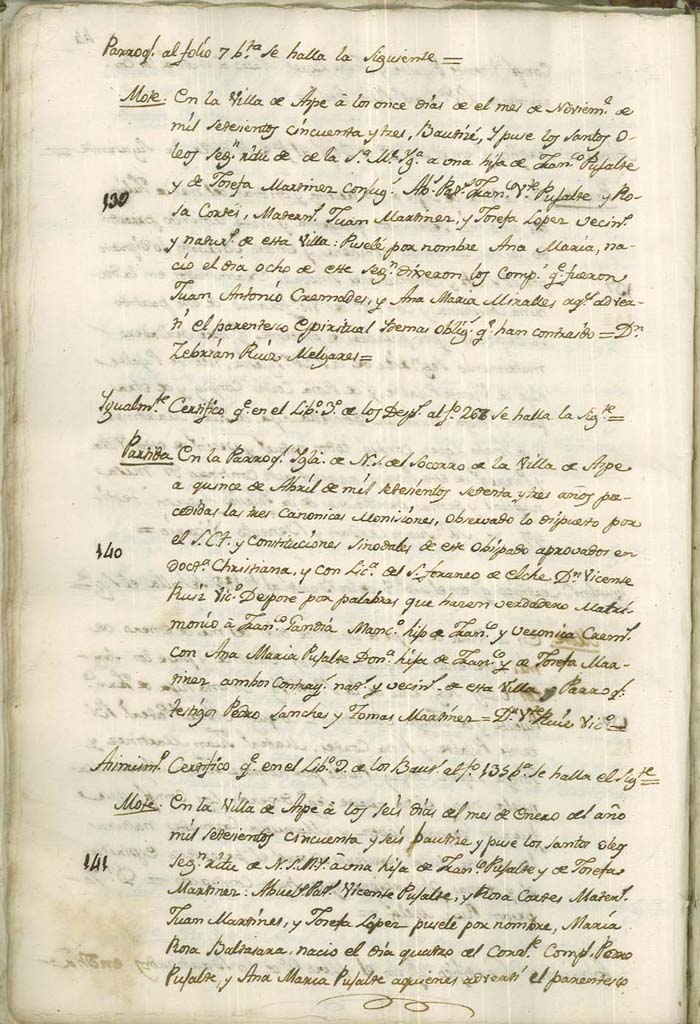 Parroql. al folio 7 bta. se halla la siguiente =
Mote: En la Villa de Aspe â los once dias de el mes de Noviembe. de
mil setesientos cincuenta y tres, Bautizé, y puse los santos O-
leos segn. ritu de de la Sa. Me. Yga. a una hija de Franco. Pujalte
y de Josefa Martinez Conjugs. Abs. Pats. Franco. Vte. Pujalte y Ro-
130
sa Cortés, Materns. Juan Martinez, y Josefa Lopez vecins.
y naturs. de esta Villa: Pusele por nombre Ana Maria, na-
ció el dia ocho de este segn. dixeron los Comps. qe. fueron
Juan Antonio Cremades, y Ana Maria Miralles aqs. adver-
tí el parentesco Espiritual y demas obligs. qe. han contraido = Dn.
Zebrián Ruiz Melgares =
Igualmte. Certifico qe. en el Libo. 3o. de los Desps. al fo. 268 se halla la sigte. =
Partida En la Parroql. Igla. de N. S. del Socorro de la Villa de Aspe
a quince de Abril de mil setesientos setenta y tres años pre-
cedidas las tres Canonicas Moniciones, observado lo dispuesto por
140
el S. C. T. y Constituciones sinodales de este Obispado aprovados en
docta. Christiana, y con Lica. del Sr. foraneo de Elche Dn. Vicente
Ruiz Vico. Desposé por palabras que hazen verdadero Matri-
monio â Franco. Pandia Manco. hijo de Franco. y Veronica Crems.
con Ana Maria Pujalte Dona. hija de Franco. y de Josefa Mar-
tinez ambos contrays. nats. y vecins. de esta Villa y Parroql.
testigos Pedro Sanches y Tomas Martinez = Dn. Vte. Ruiz Vico. =
Asimismo. Certifico qe. en el Libo. 7. de los Bauts. al fo. 135 ba. se halla el Sigte. =
Mote: En la Villa de Aspe â los seis dias del mes de Enero del año
mil setesientos cincuenta y seis bautize y puse los santos oleos
141
segn. ritu de N. S. Me. â una hija de Franco. Pujalte y de Josefa
Martinez: Abuels. Pats. Vicente Pujalte, y Rosa Cortes Materns.
Juan Martines, y Josefa Lopez pusele por nombre, Maria
Rosa Baltasara, nacio el dia quatro del Corrte. Comps. Pedro
Pujalte, y Ana Maria Pujalte aquienes advertí el parentesco